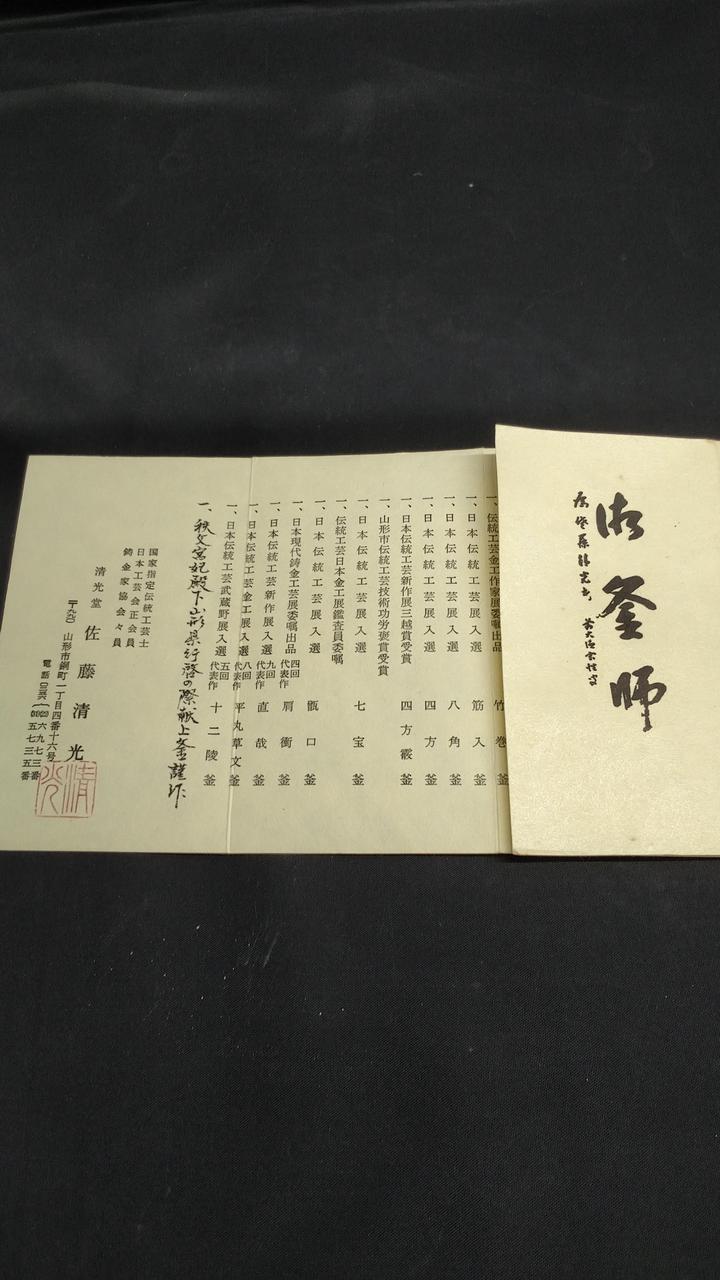 御釜師
一、伝統工芸金工作家展委嘱出品 竹巻釜
一、日本伝統工芸展入選 筋入釜
一、日本伝統工芸展入選 八角釜
一、日本伝統工芸展入選 四方釜
一、日本伝統工芸新作展三越賞受賞 四方霰釜
一、山形市伝統工芸技術功労褒賞受賞
一、日本伝統工芸展入選 七宝釜
一、伝統工芸日本金工展鑑査員委嘱
一、日本伝統工芸展入選 甑口釜
一、日本現代鋳金工芸展委嘱出品 四回代表作 肩衝釜
一、日本伝統工芸新作展入選 九回代表作 直哉釜
一、日本伝統工芸金工展入選 八回代表作 平丸草文釜
一、日本伝統工芸武蔵野展入選 五回代表作 十二陵釜
一、秩父宮妃殿下山形県行啓の際献上釜謹作
国家指定伝統工芸士
日本工芸会正会員
鋳金家協会々員
清光堂 佐藤清光
山形市銅町一丁目四番十六号
清光